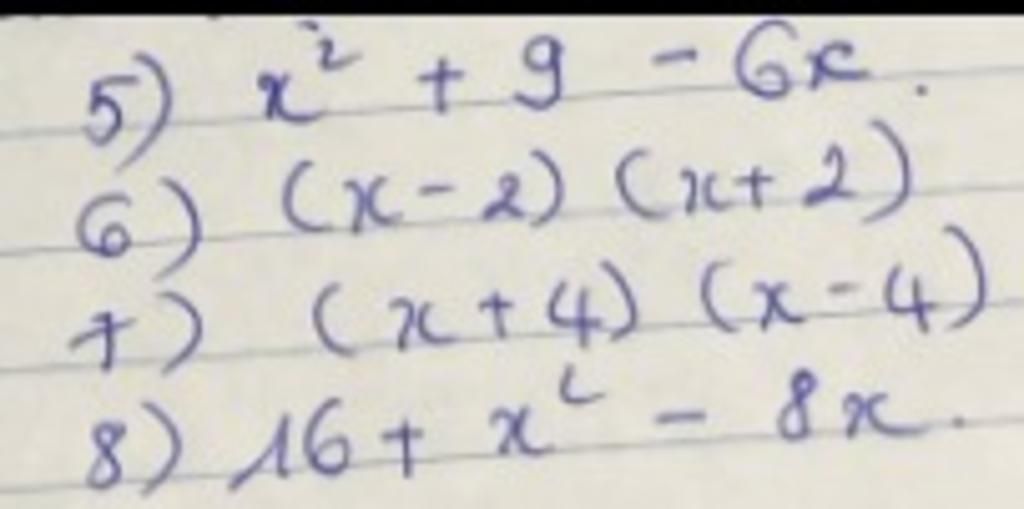 5) x² + 9 - 6x.
6) (x - 2) (x + 2)
7) (x + 4) (x - 4)
8) 16 + x² - 8x.